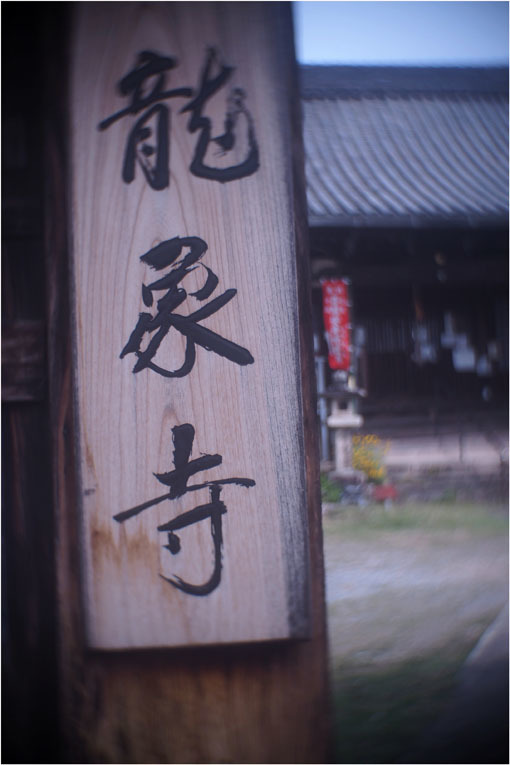 龍象寺